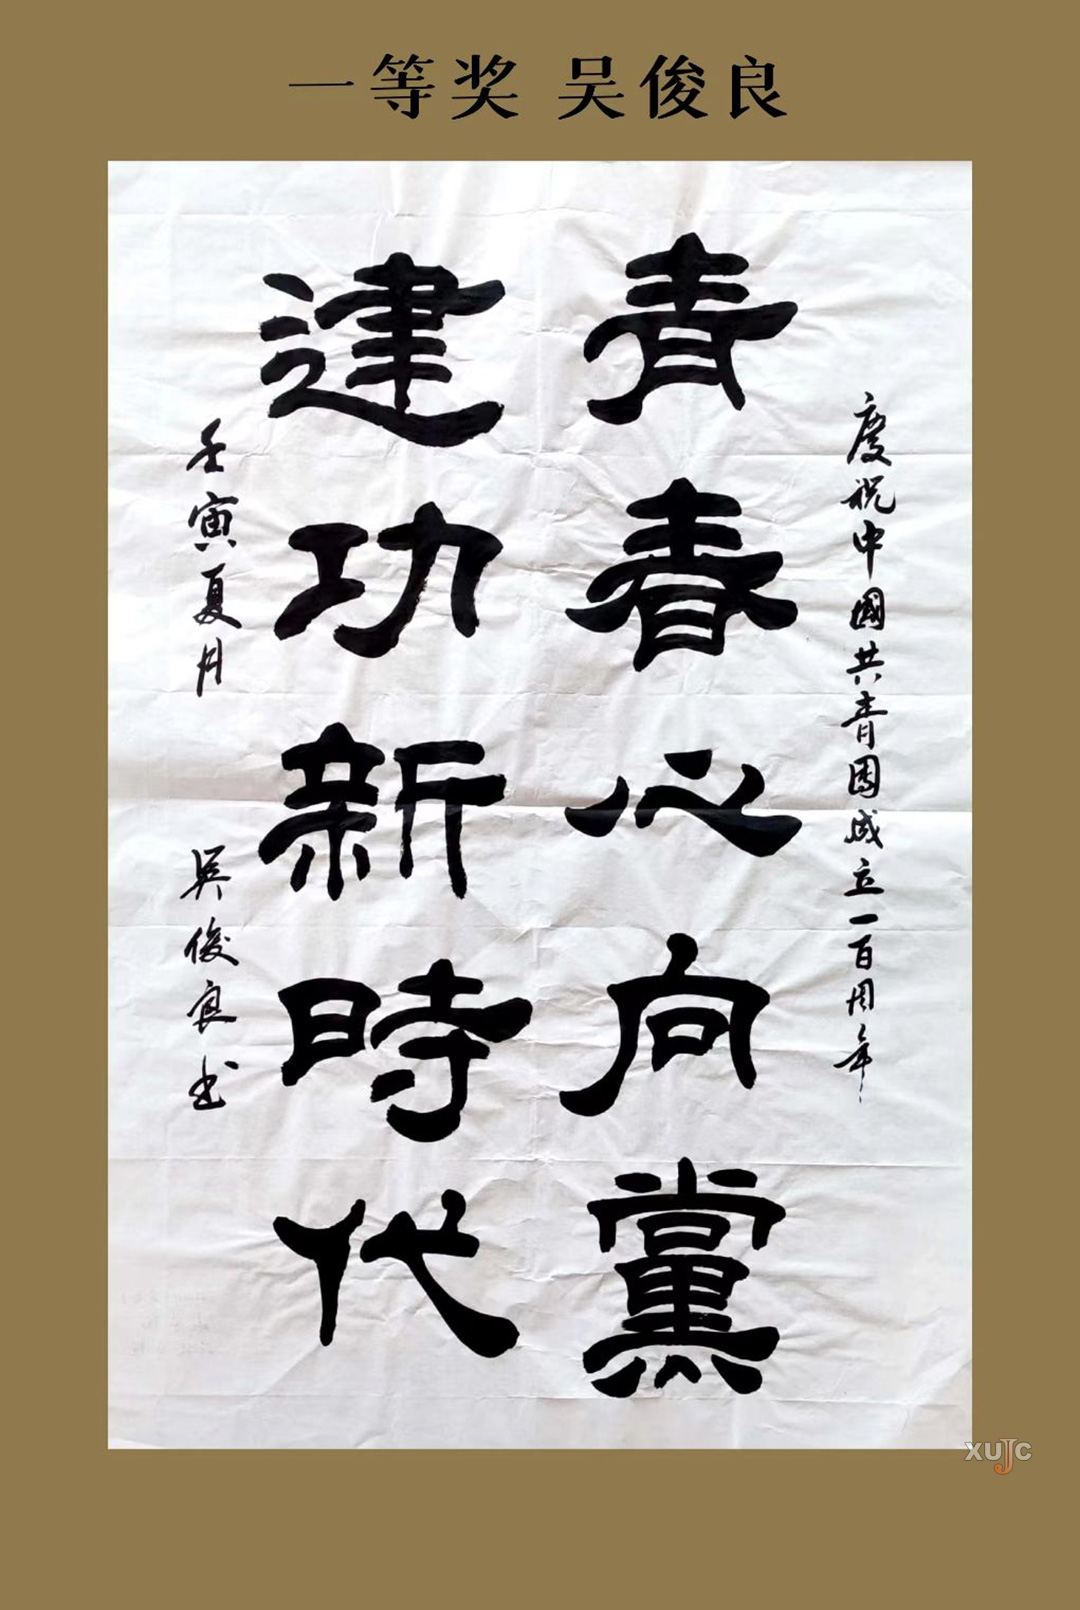 一等奖 吴俊良
慶祝中國共青團成立一百周年
青春心向黨
建功新時代
壬寅夏月 吳俊良书
XUJC